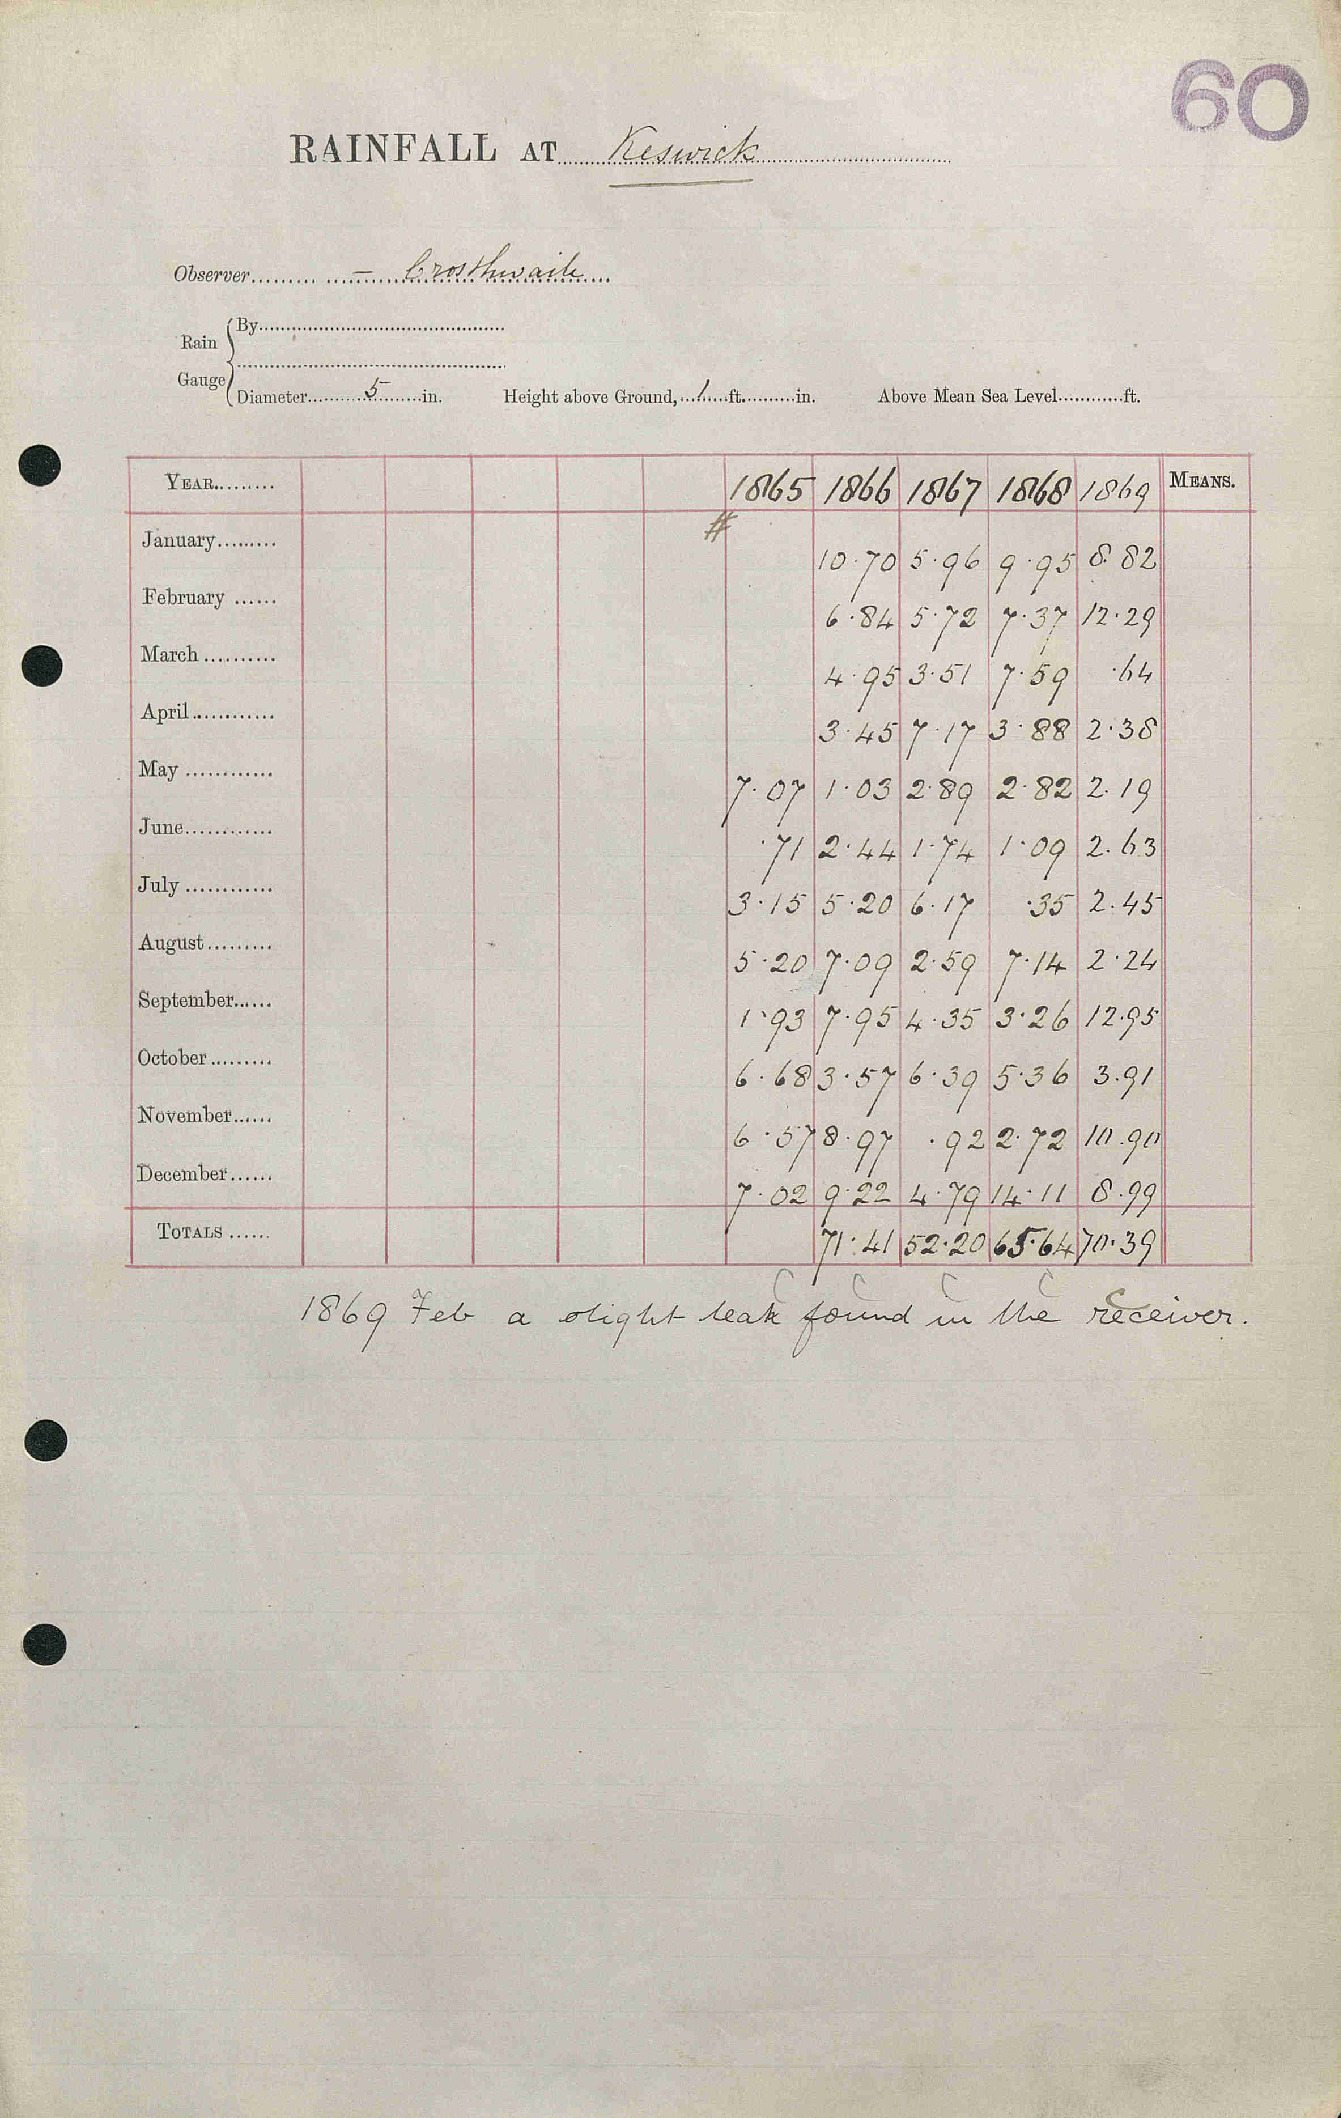 60
RAINFALL AT Keswick
Observer – Crosthwaite
Rain Gauge
By
Diameter 5 in. Height above Ground, 1 ft. in. Above Mean Sea Level ft.
YEAR 1865 1866 1867 1868 1869 MEANS.
#
January 10.70 5.96 9.95 8.82
February 6.84 5.72 7.37 12.29
March 4.95 3.51 7.59 .64
April 3.45 7.17 3.88 2.38
May 7.07 1.03 2.89 2.82 2.19
June .71 2.44 1.74 1.09 2.63
July 3.15 5.20 6.17 .35 2.45
August 5.20 7.09 2.59 7.14 2.24
September 1.93 7.95 4.35 3.26 12.95
October 6.68 3.57 6.39 5.36 3.91
November 6.57 8.97 .92 2.72 10.90
December 7.02 9.22 4.79 14.11 8.99
TOTALS 71.41 52.20 65.64 70.39
C C C C C
1869 Feb a slight leak found in the receiver.